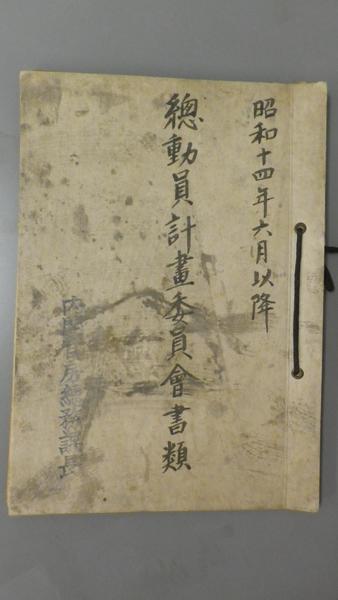 昭和十四年六月以降
總動員計畫委員會書類
大臣官房總務課長